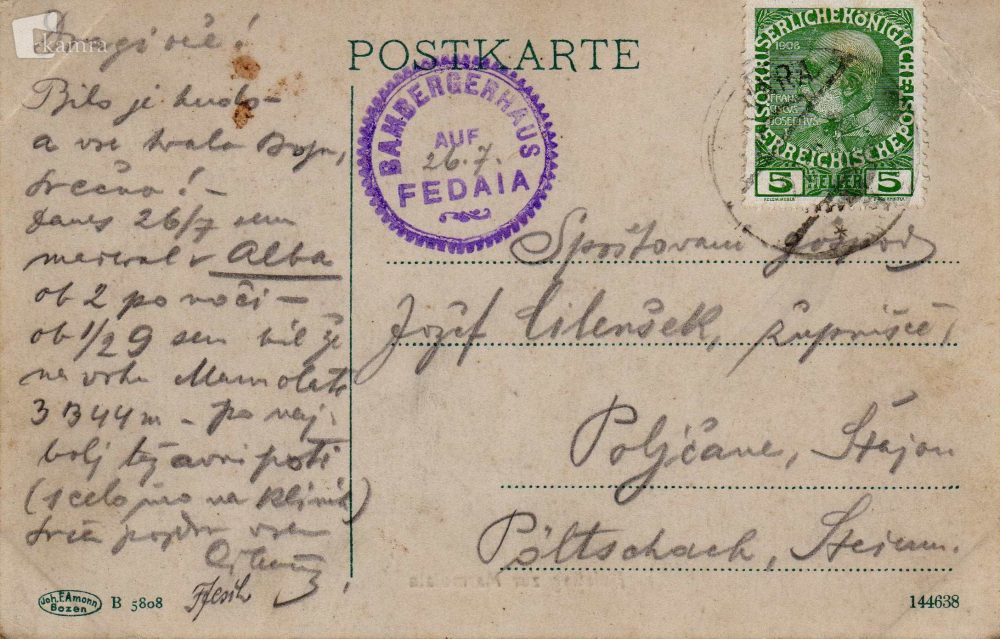 kamra
Dragi oče!
Bilo je hudo –
a vse hvala Bogu,
srečno! –
Danes 26/7 sem
v Alba
ob 2 po noči –
ob 1/2 9 sem bil že
na vrhu Marmolate
3344 m – po naj-
bolj poti
(1 celo uro na klinih)
pozdr vsem
POSTKARTE
BAMBERGERHAUS
AUF
26.7.
FEDAIA
KAISERLICHEKÖNIGLICHE
1908
ÖSTERREICHISCHE POST
5 HELLER 5
Spoštovani gospod
Jožef Cilenšek,
Poljčane, Štajer
Pöltschach, Steierm.
Joh. F. Amonn
Bozen
B 5808
144638